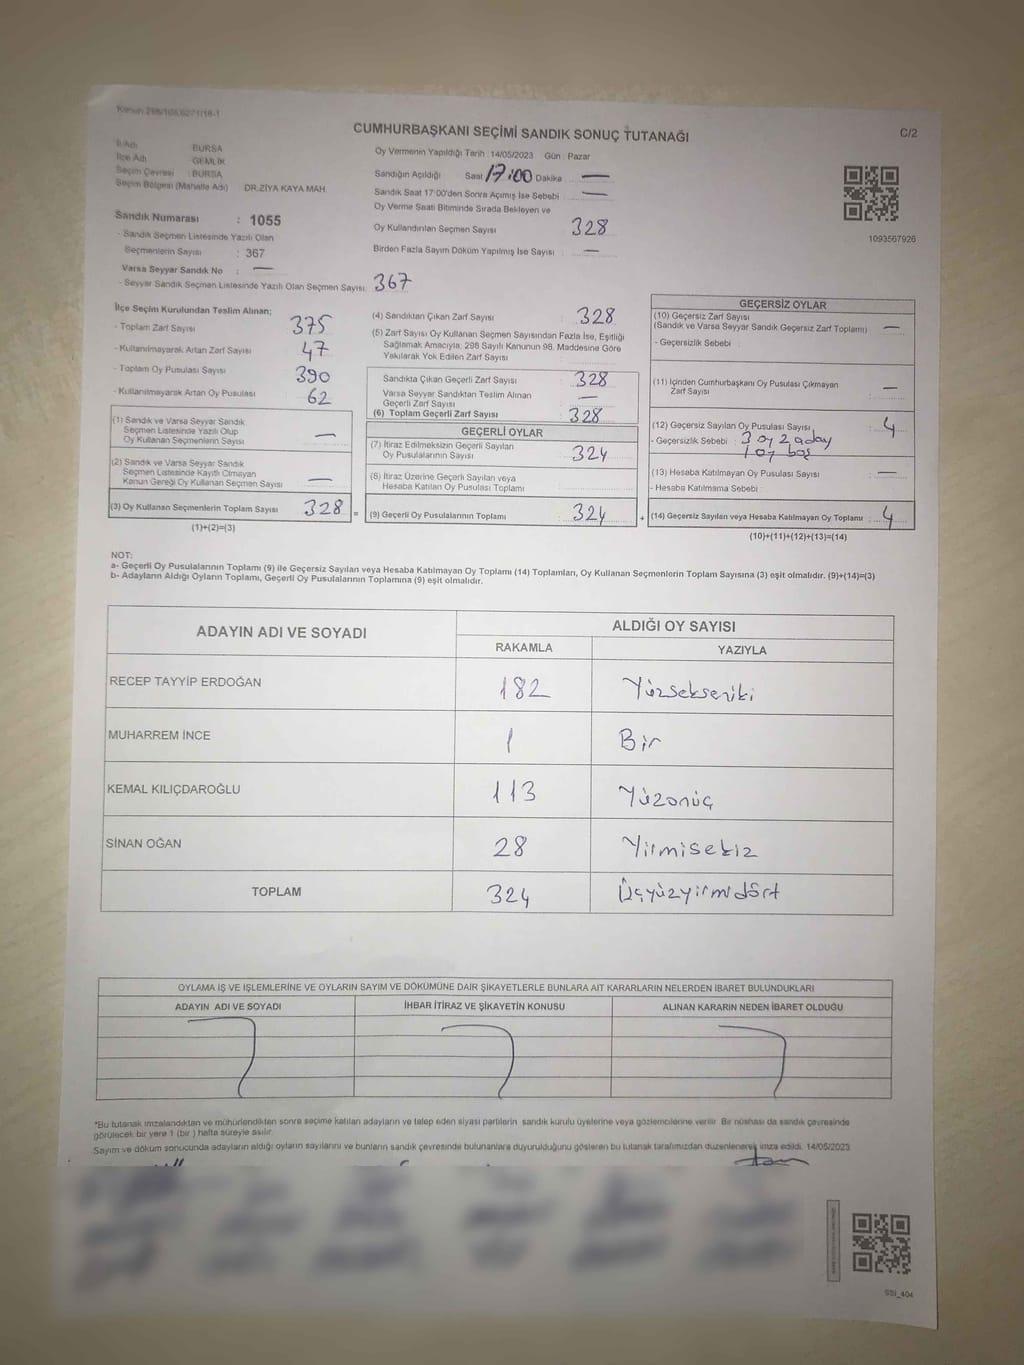 Kanun 298/105,6271/16-1
CUMHURBAŞKANI SEÇİMİ SANDIK SONUÇ TUTANAĞI
C/2
İl Adı : BURSA
İlçe Adı : GEMLİK
Seçim Çevresi : BURSA
Seçim Bölgesi (Mahalle Adı) DR.ZİYA KAYA MAH.
Sandık Numarası : 1055
- Sandık Seçmen Listesinde Yazılı Olan
Seçmenlerin Sayısı : 367
Varsa Seyyar Sandık No : —
- Seyyar Sandık Seçmen Listesinde Yazılı Olan Seçmen Sayısı: 367
Oy Vermenin Yapıldığı Tarih : 14/05/2023 Gün : Pazar
Sandığın Açıldığı Saat 17:00 Dakika : —
Sandık Saat 17:00'den Sonra Açımış İse Sebebi : —
Oy Verme Saati Bitiminde Sırada Bekleyen ve
Oy Kullandırılan Seçmen Sayısı : 328
Birden Fazla Sayım Döküm Yapılmış İse Sayısı : —
1093567926
İlçe Seçim Kurulundan Teslim Alınan;
- Toplam Zarf Sayısı 375
- Kullanılmayarak Artan Zarf Sayısı 47
- Toplam Oy Pusulası Sayısı 390
- Kullanılmayarak Artan Oy Pusulası 62
(1) Sandık ve Varsa Seyyar Sandık
Seçmen Listesinde Yazılı Olup
Oy Kullanan Seçmenlerin Sayısı —
(2) Sandık ve Varsa Seyyar Sandık
Seçmen Listesinde Kayıtlı Olmayan
Kanun Gereği Oy Kullanan Seçmen Sayısı —
(3) Oy Kullanan Seçmenlerin Toplam Sayısı 328 =
(1)+(2)=(3)
(4) Sandıktan Çıkan Zarf Sayısı : 328
(5) Zarf Sayısı Oy Kullanan Seçmen Sayısından Fazla İse, Eşitliği
Sağlamak Amacıyla; 298 Sayılı Kanunun 98. Maddesine Göre
Yakılarak Yok Edilen Zarf Sayısı :
Sandıkta Çıkan Geçerli Zarf Sayısı : 328
Varsa Seyyar Sandıktan Teslim Alınan
Geçerli Zarf Sayısı : —
(6) Toplam Geçerli Zarf Sayısı : 328
GEÇERLİ OYLAR
(7) İtiraz Edilmeksizin Geçerli Sayılan
Oy Pusulalarının Sayısı : 324
(8) İtiraz Üzerine Geçerli Sayılan veya
Hesaba Katılan Oy Pusulası Toplamı :
(9) Geçerli Oy Pusulalarının Toplamı : 324 +
GEÇERSİZ OYLAR
(10) Geçersiz Zarf Sayısı
(Sandık ve Varsa Seyyar Sandık Geçersiz Zarf Toplamı) : —
- Geçersizlik Sebebi :
(11) İçinden Cumhurbaşkanı Oy Pusulası Çıkmayan
Zarf Sayısı : —
(12) Geçersiz Sayılan Oy Pusulası Sayısı : 4
- Geçersizlik Sebebi : 3 oy 2 aday
1 oy boş
(13) Hesaba Katılmayan Oy Pusulası Sayısı : —
- Hesaba Katılmama Sebebi :
(14) Geçersiz Sayılan veya Hesaba Katılmayan Oy Toplamı : 4
(10)+(11)+(12)+(13)=(14)
NOT:
a- Geçerli Oy Pusulalarının Toplamı (9) ile Geçersiz Sayılan veya Hesaba Katılmayan Oy Toplamı (14) Toplamları, Oy Kullanan Seçmenlerin Toplam Sayısına (3) eşit olmalıdır. (9)+(14)=(3)
b- Adayların Aldığı Oyların Toplamı, Geçerli Oy Pusulalarının Toplamına (9) eşit olmalıdır.
ADAYIN ADI VE SOYADI ALDIĞI OY SAYISI
RAKAMLA YAZIYLA
RECEP TAYYİP ERDOĞAN 182 Yüzsekseniki
MUHARREM İNCE 1 Bir
KEMAL KILIÇDAROĞLU 113 Yüzonüç
SİNAN OĞAN 28 Yirmisekiz
TOPLAM 324 Üçyüzyirmidört
OYLAMA İŞ VE İŞLEMLERİNE VE OYLARIN SAYIM VE DÖKÜMÜNE DAİR ŞİKAYETLERLE BUNLARA AİT KARARLARIN NELERDEN İBARET BULUNDUKLARI
ADAYIN ADI VE SOYADI İHBAR İTİRAZ VE ŞİKAYETİN KONUSU ALINAN KARARIN NEDEN İBARET OLDUĞU
*Bu tutanak imzalandıktan ve mühürlendikten sonra seçime katılan adayların ve talep eden siyasi partilerin sandık kurulu üyelerine veya gözlemcilerine verilir. Bir nüshası da sandık çevresinde
görülecek bir yere 1 (bir ) hafta süreyle asılır.
Sayım ve döküm sonucunda adayların aldığı oyların sayılarını ve bunların sandık çevresinde bulunanlara duyurulduğunu gösteren bu tutanak tarafımızdan düzenlenerek imza edildi. 14/05/2023
SSİ_404